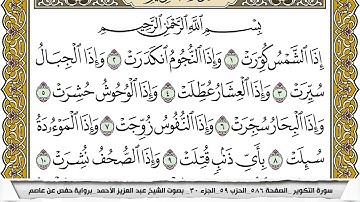 بِسْمِ ٱللَّهِ ٱلرَّحْمَٰنِ ٱلرَّحِيمِ
إِذَا ٱلشَّمْسُ كُوِّرَتْ ١ وَإِذَا ٱلنُّجُومُ ٱنكَدَرَتْ ٢ وَإِذَا ٱلْجِبَالُ
سُيِّرَتْ ٣ وَإِذَا ٱلْعِشَارُ عُطِّلَتْ ٤ وَإِذَا ٱلْوُحُوشُ حُشِرَتْ ٥
وَإِذَا ٱلْبِحَارُ سُجِّرَتْ ٦ وَإِذَا ٱلنُّفُوسُ زُوِّجَتْ ٧ وَإِذَا ٱلْمَوْءُۥدَةُ
سُئِلَتْ ٨ بِأَىِّ ذَنۢبٍ قُتِلَتْ ٩ وَإِذَا ٱلصُّحُفُ نُشِرَتْ ١٠
سورة التكوير _الصفحة ٥٨٦ _الحزب ٥٩ _الجزء ٣٠ _بصوت الشيخ عبد العزيز الأحمد _برواية حفص عن عاصم